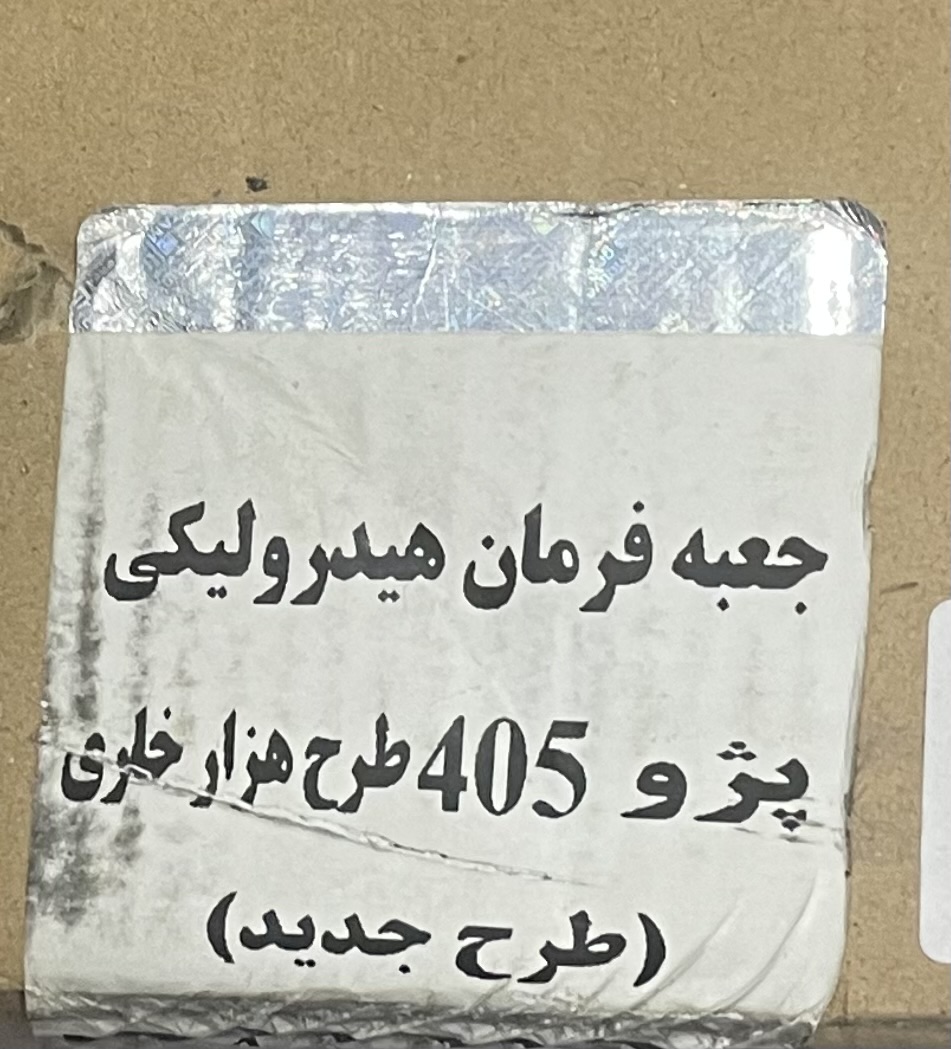 جعبه فرمان هیدرولیکی
پژو 405 طرح هزار خاری
(طرح جدید)